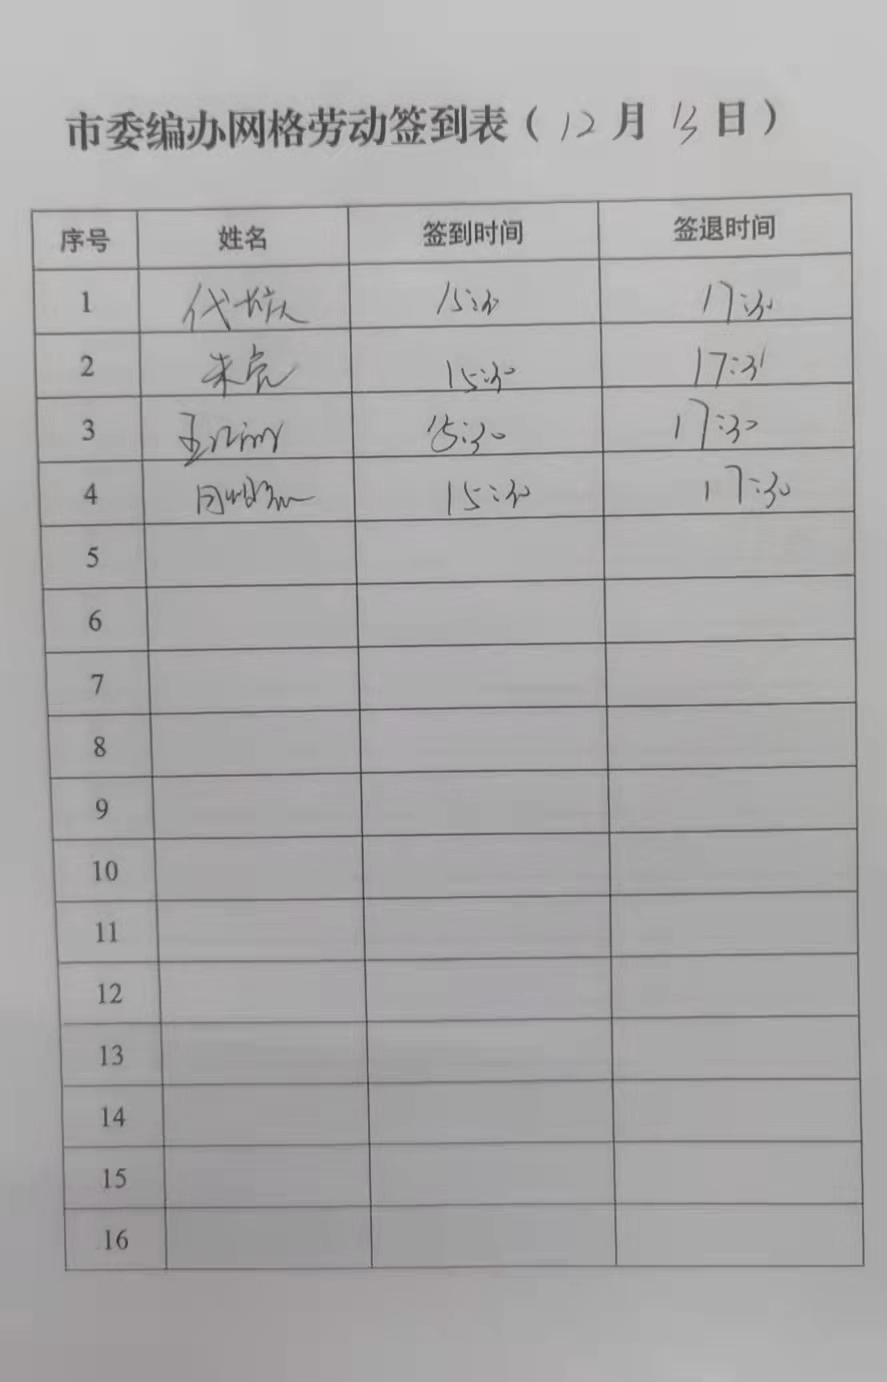 市委编办网格劳动签到表（12月13日）
序号 姓名 签到时间 签退时间
1 15:30 17:30
2 朱亮 15:30 17:31
3 15:30 17:30
4 15:30 17:30
5
6
7
8
9
10
11
12
13
14
15
16